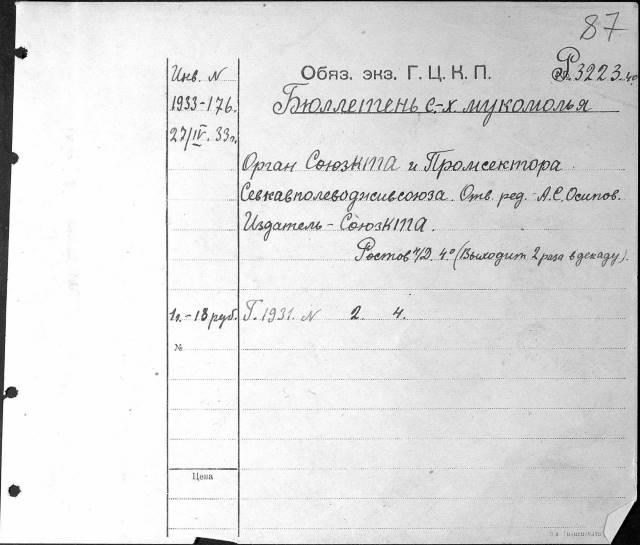 87
Инв. N
Обяз. экз. Г. Ц. К. П.
Р 3223.40
1933-176.
Бюллетень с.-х. мукомолья
27/IV. 33г.
Орган Союзкта и Промсектора
Севкавполеводживсоюза. Отв. ред. - А.С. Осипов.
Издатель - Союзкта.
Ростов н/Д. 4.° (Выходит 2 раза в декаду).
1г. - 18 руб.
Г. 1931. N 2. 4.
№
Цена